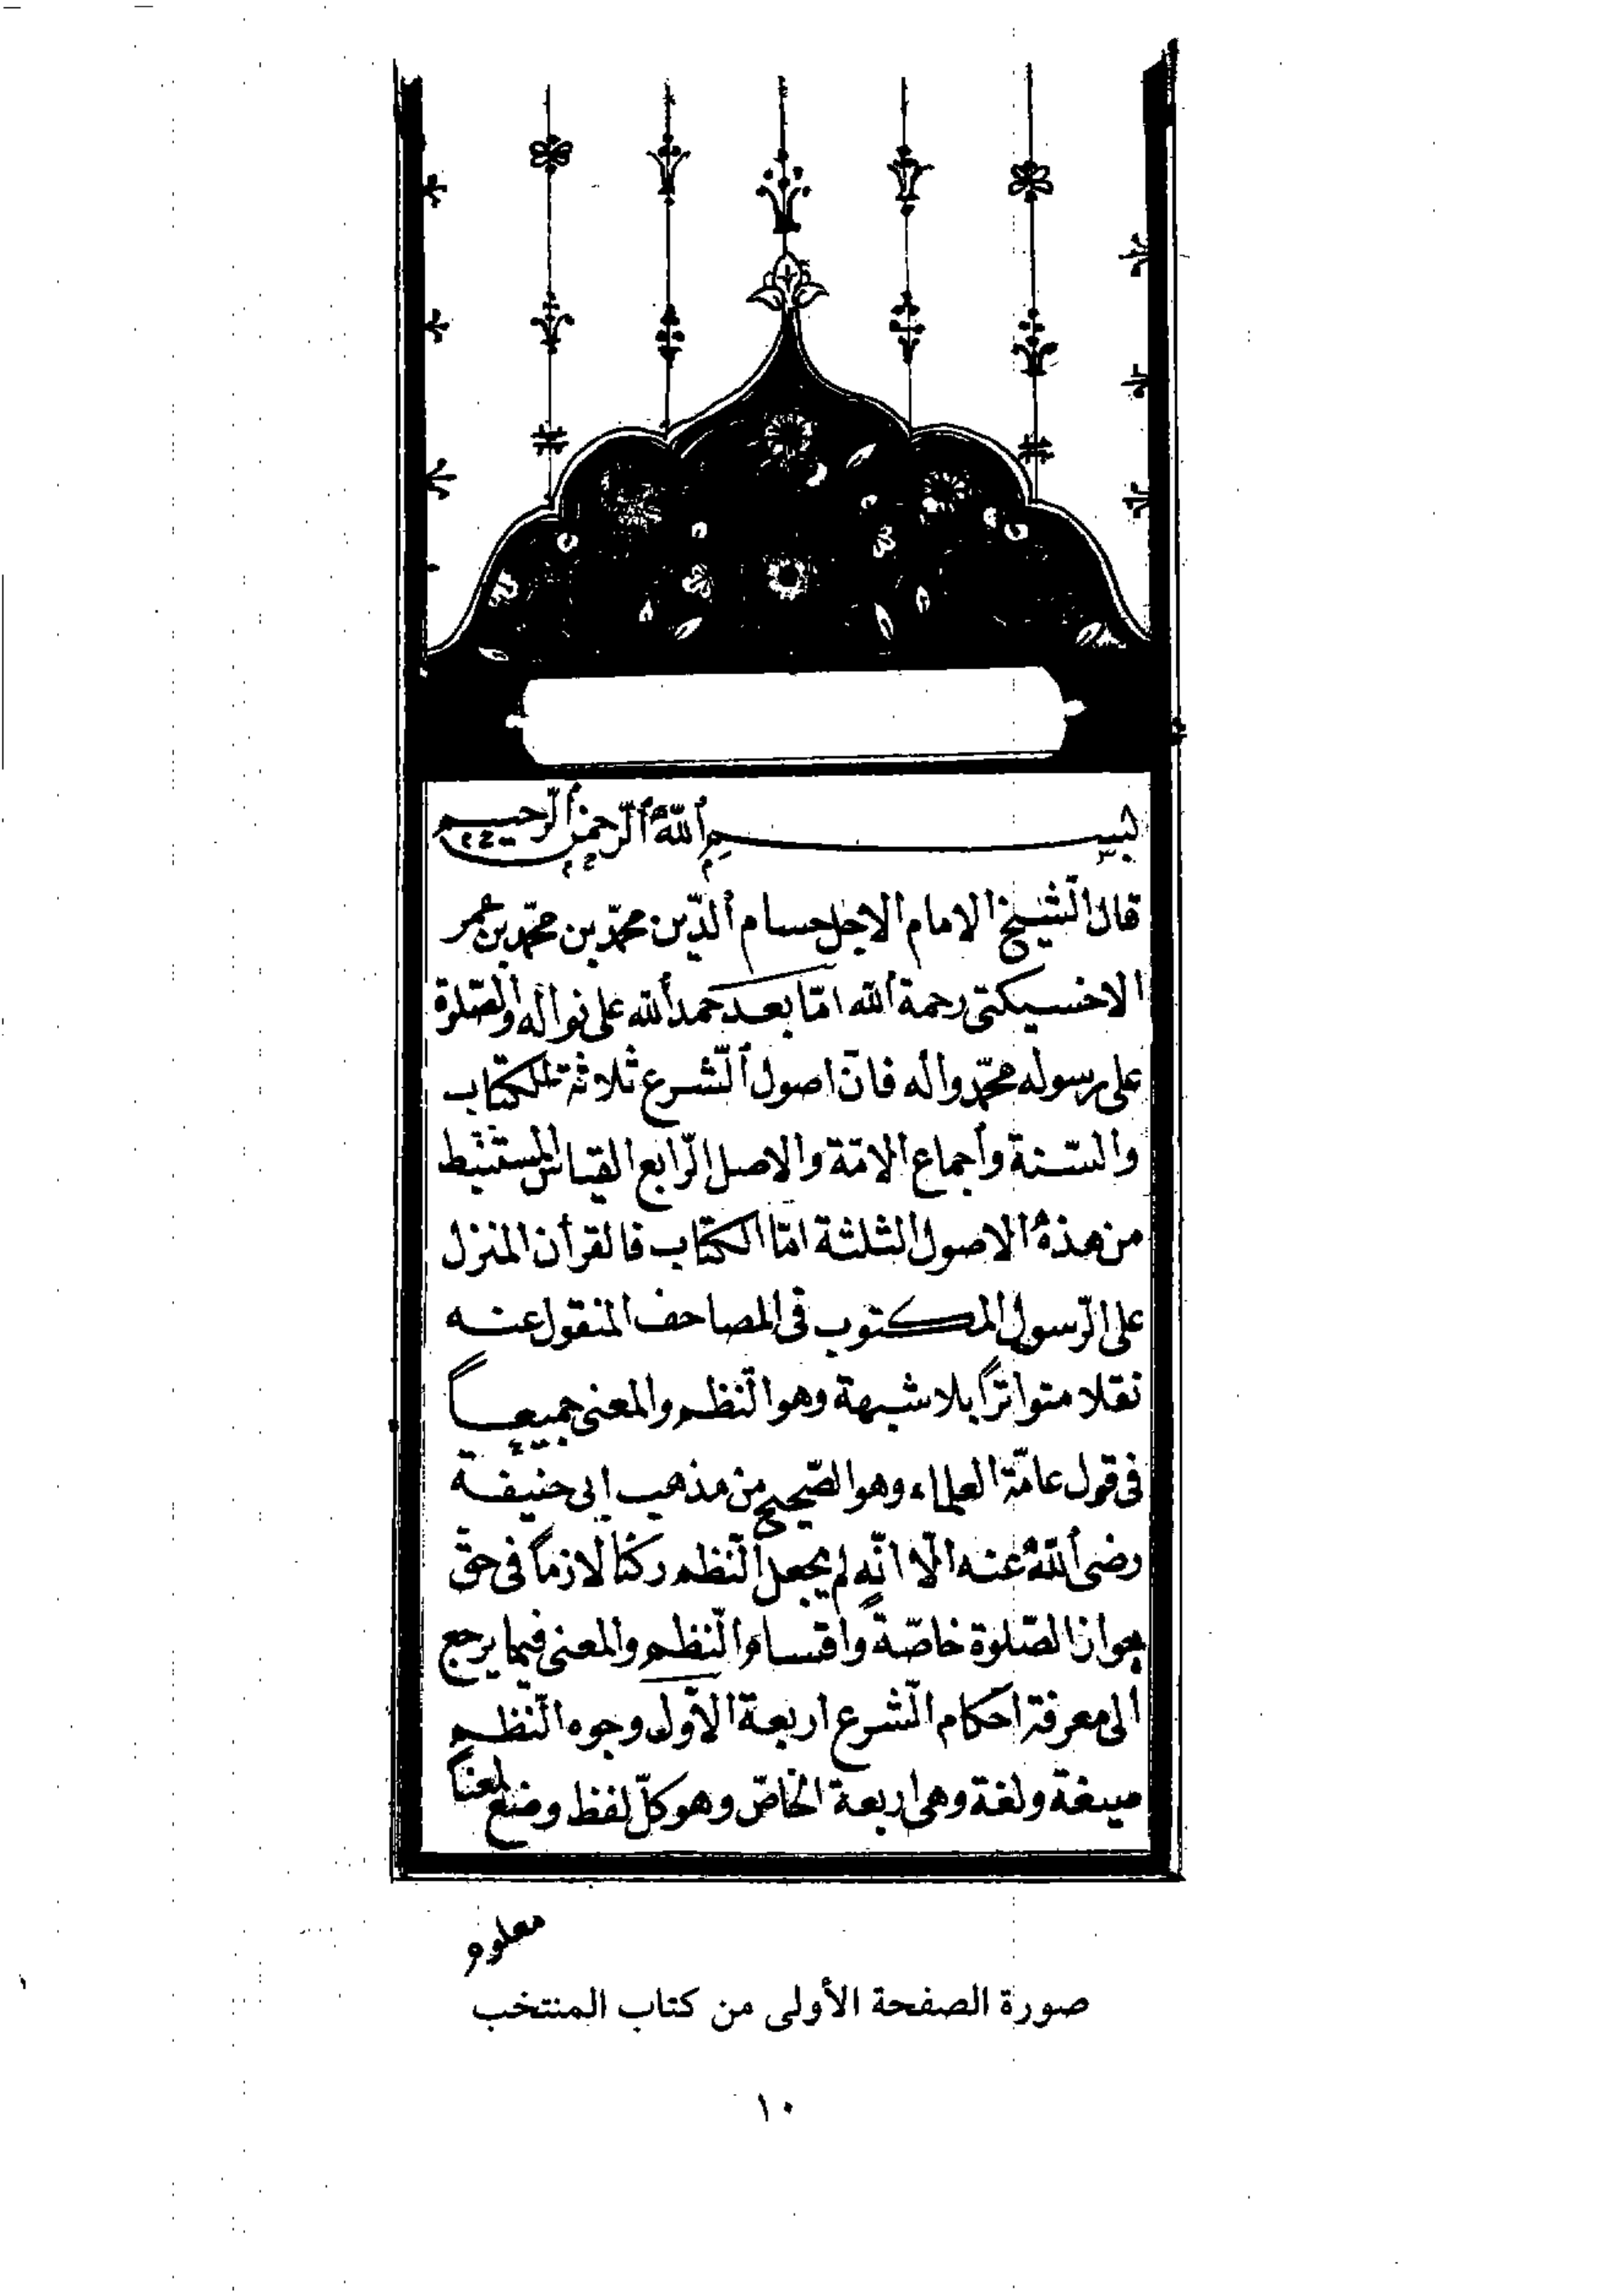 بسم الله الرحمن الرحيم
قال الشيخ الامام الاجل حسام الدين محمد بن محمد بن عمر
الاخسيكتى رحمة الله امّا بعد حمد الله على نواله والصّلوة
على رسوله محمّد واله فانّ اصول الشّرع ثلاثة الكتاب
والسّنة وأجماع الامّة والاصل الرّابع القياس المستنبط
من هذه الاصول الثلثة امّا الكتاب فالقرأن المنزل
على الرّسول المكتوب فى المصاحف المنقول عنه
نقلا متواتراً بلا شبهة وهو النّظم والمعنى جميعاً
فى قول عامّة العلماء وهو الصّحيح من مذهب ابى حنيفة
رضى الله عنه الّا انّه لم يجعل النّظم ركنا لازماً فى حقّ
جواز الصّلوة خاصّةً واقسام النّظم والمعنى فيما يرجع
ألى معرفة احكام الشّرع اربعة الاوّل وجوه النّظم
صيغة ولغة وهى اربعة الخاصّ وهو كلّ لفظ وضع لمعناً
معلوم
صورة الصفحة الأولى من كتاب المنتخب
١٠